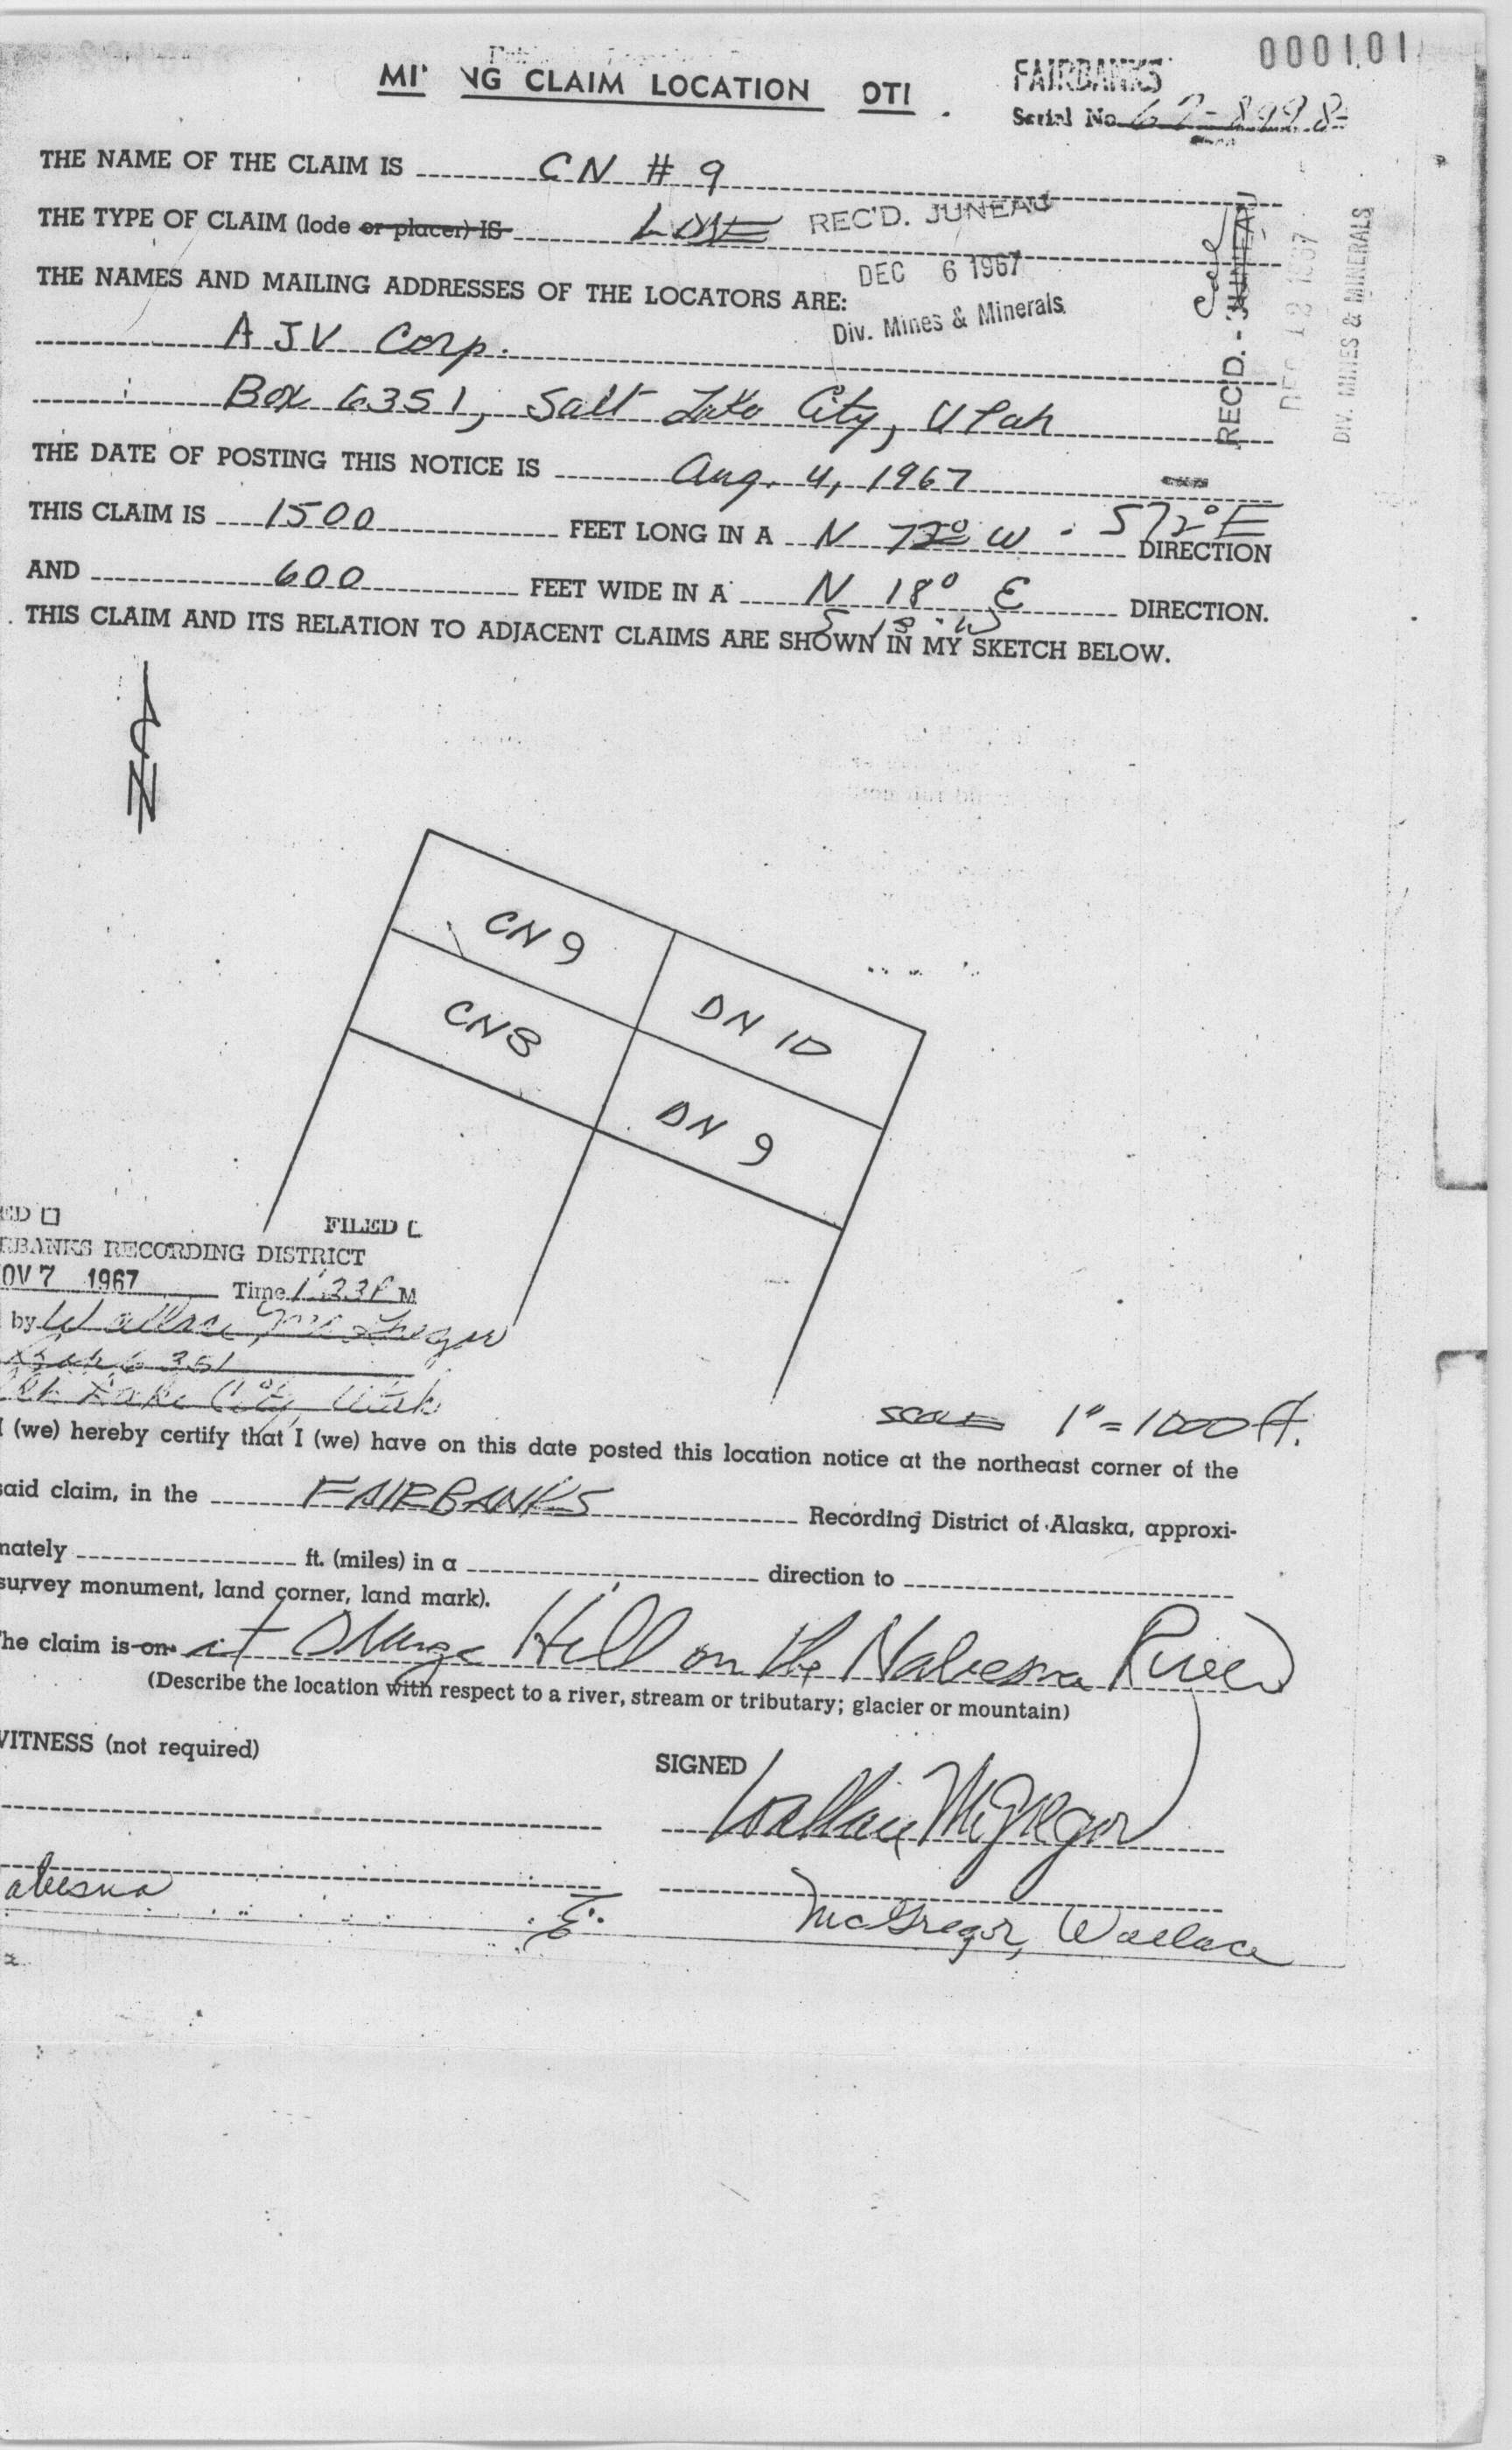 000101
MI NG CLAIM LOCATION OTI .
FAIRBANKS
Serial No. 67-8998
THE NAME OF THE CLAIM IS CN # 9
THE TYPE OF CLAIM (lode or placer) IS LODE
REC'D. JUNEAU
DEC 6 1967
Div. Mines & Minerals
REC'D. - JUNEAU
DEC 12 1967
DIV. MINES & MINERALS
THE NAMES AND MAILING ADDRESSES OF THE LOCATORS ARE:
AJV Corp.
Box 6351, Salt Lake City, Utah
THE DATE OF POSTING THIS NOTICE IS Aug. 4, 1967
THIS CLAIM IS 1500 FEET LONG IN A N 72° W - S72°E DIRECTION
AND 600 FEET WIDE IN A N 18° E DIRECTION.
S 18° W
THIS CLAIM AND ITS RELATION TO ADJACENT CLAIMS ARE SHOWN IN MY SKETCH BELOW.
N
CN 9
DN 10
CN8
DN 9
ED FILED
RBANKS RECORDING DISTRICT
OV 7 1967 Time 1:33 P M
by Wallace McGregor
Box 6351
Lake City, Utah
SCALE 1"=1000 ft.
I (we) hereby certify that I (we) have on this date posted this location notice at the northeast corner of the
said claim, in the FAIRBANKS Recording District of Alaska, approxi-
mately ft. (miles) in a direction to
survey monument, land corner, land mark).
The claim is on at Orange Hill on the Nabesna River
(Describe the location with respect to a river, stream or tributary; glacier or mountain)
WITNESS (not required)
SIGNED Wallace McGregor
abesna
McGregor, Wallace